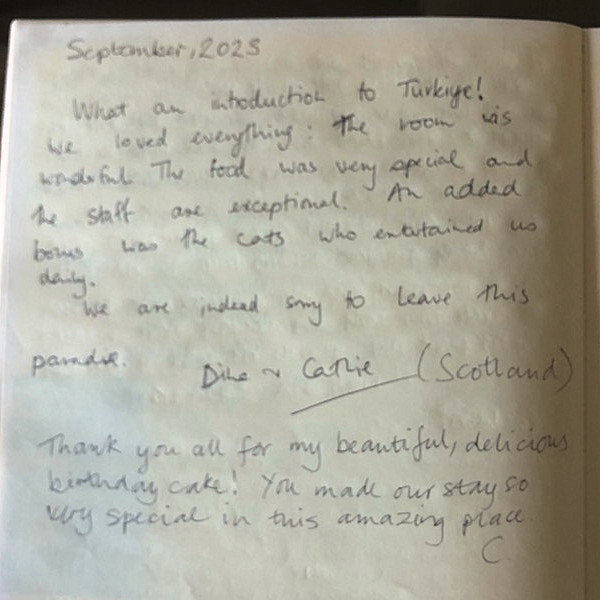 September, 2023
What an introduction to Turkiye!
We loved everything: The room was
wonderful. The food was very special and
the staff are exceptional. An added
bonus was the cats who entertained us
daily.
We are indeed sorry to leave this
paradise.
& Cathie (Scotland)
Thank you all for my beautiful, delicious
birthday cake! You made our stay so
very special in this amazing place.
C.